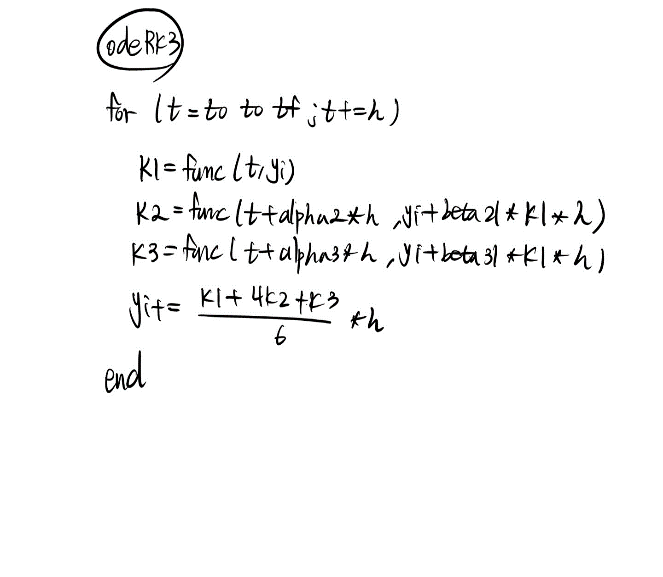 odeRK3
for (t = to to tf ; t+=h)
K1 = func (t, yi)
K2 = func (t+alpha2*h , yi+beta21*K1*h)
K3 = func (t+alpha3*h , yi+beta31*K1*h)
yi+= K1+4K2+K3 / 6 *h
end